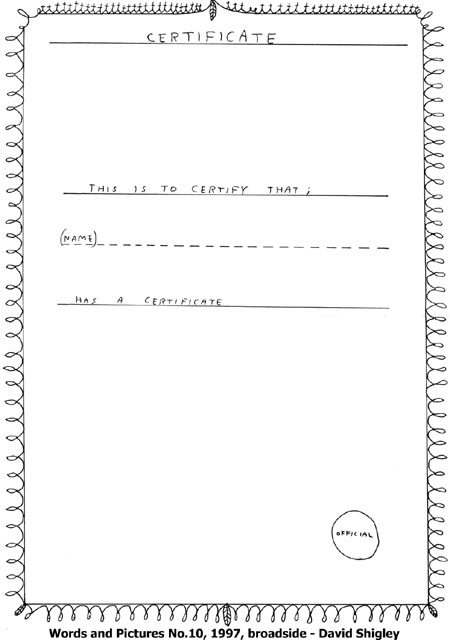 CERTIFICATE
THIS IS TO CERTIFY THAT;
(NAME)
HAS A CERTIFICATE
OFFICIAL
Words and Pictures No.10, 1997, broadside - David Shigley